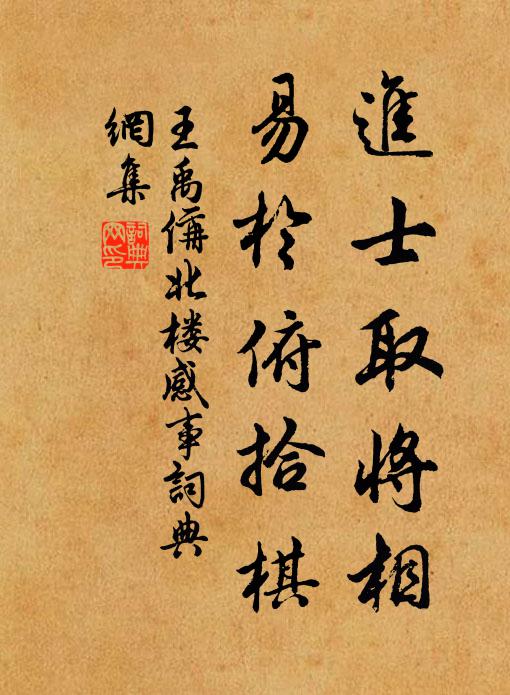 進士取將相
易於俯拾棋
王禹偁北楼感事詞典
網集
詞典網印